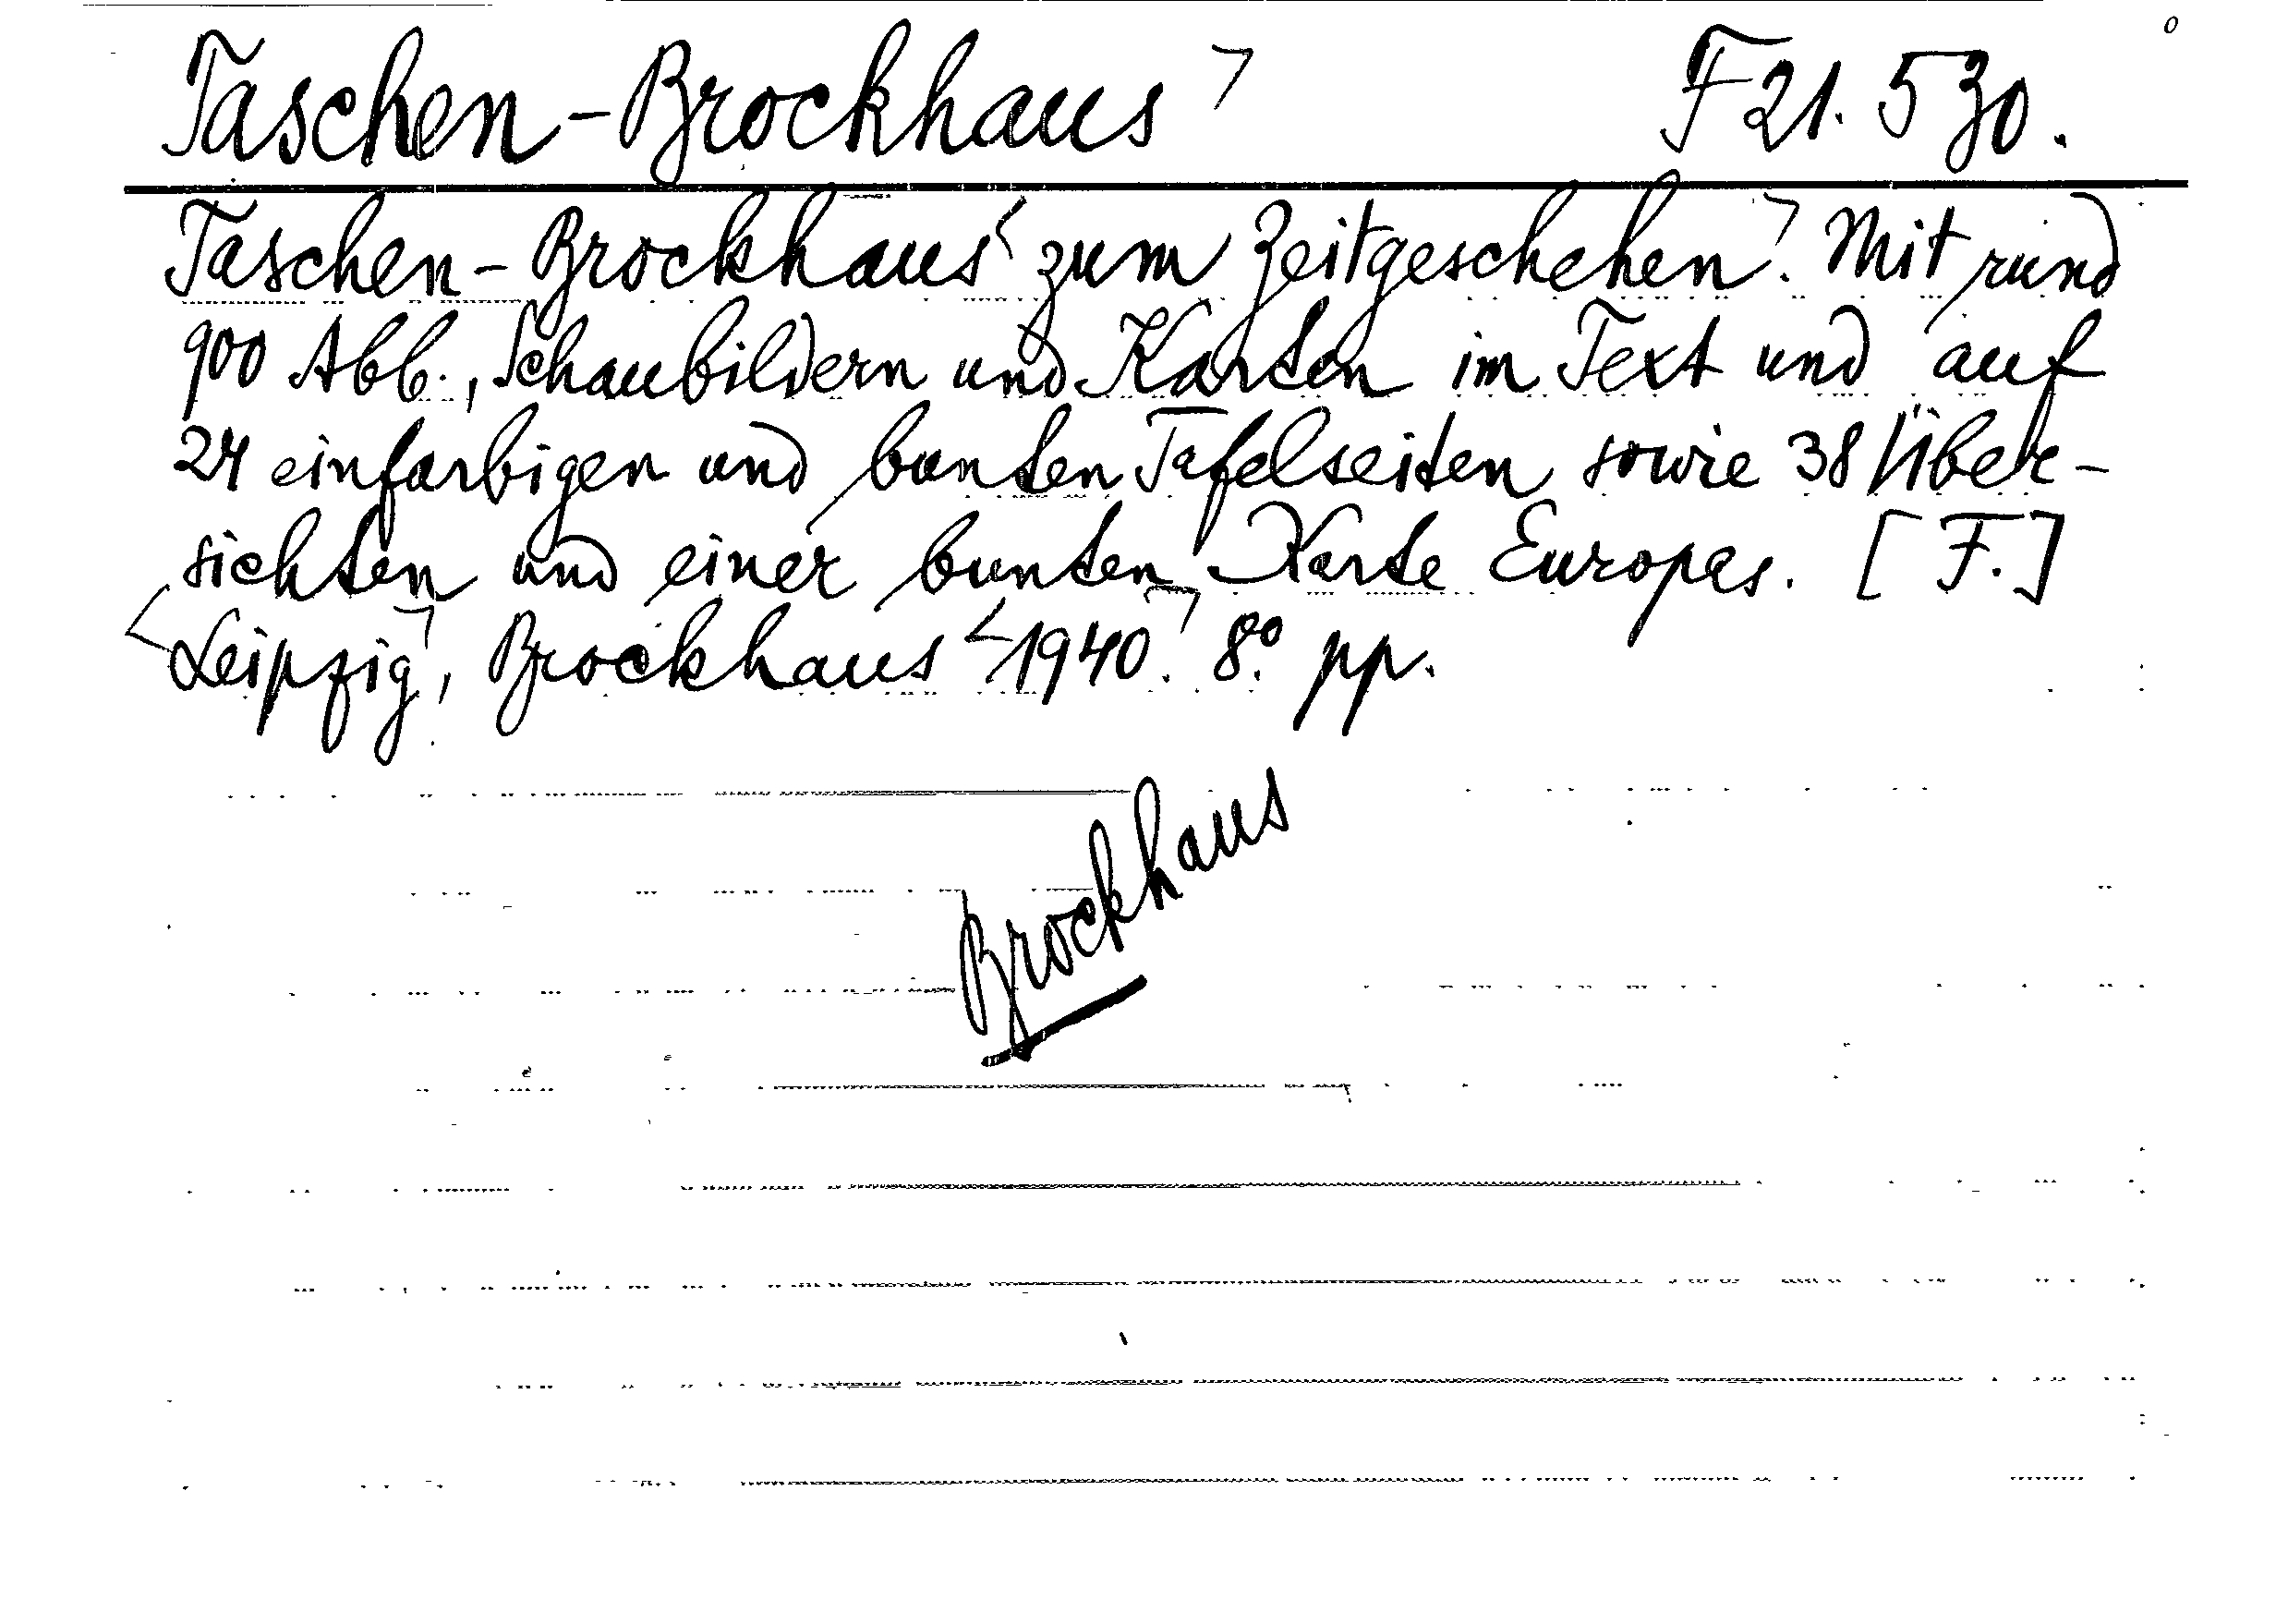 Taschen-Brockhaus ⌝ F 21.530.
Taschen-Brockhaus ⌜ zum Zeitgeschehen ⌝. Mit rund
900 Abb., Schaubildern und Karten im Text und auf
24 einfarbigen und bunten Tafelseiten sowie 38 Über-
sichten und einer bunten Karte Europas. [F.]
⌜Leipzig⌝, Brockhaus ⌜1940.⌝ 8.º pp.
Brockhaus